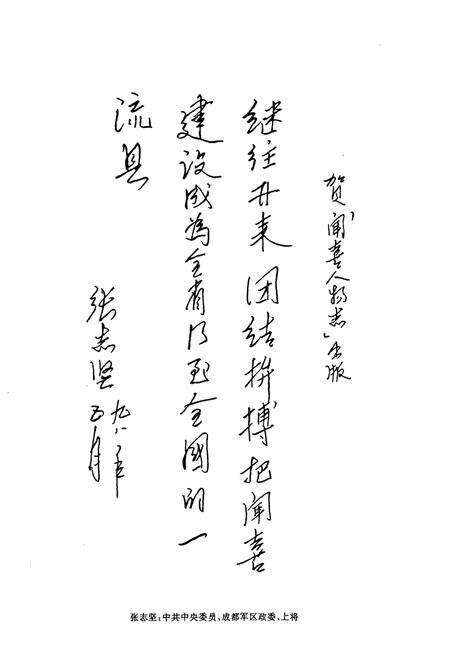 贺“闻喜人物志”出版
继往开来团结拚搏把闻喜
建设成为全省乃至全国的一
流县
张志坚
九八年
五月
张志坚：中共中央委员、成都军区政委、上将